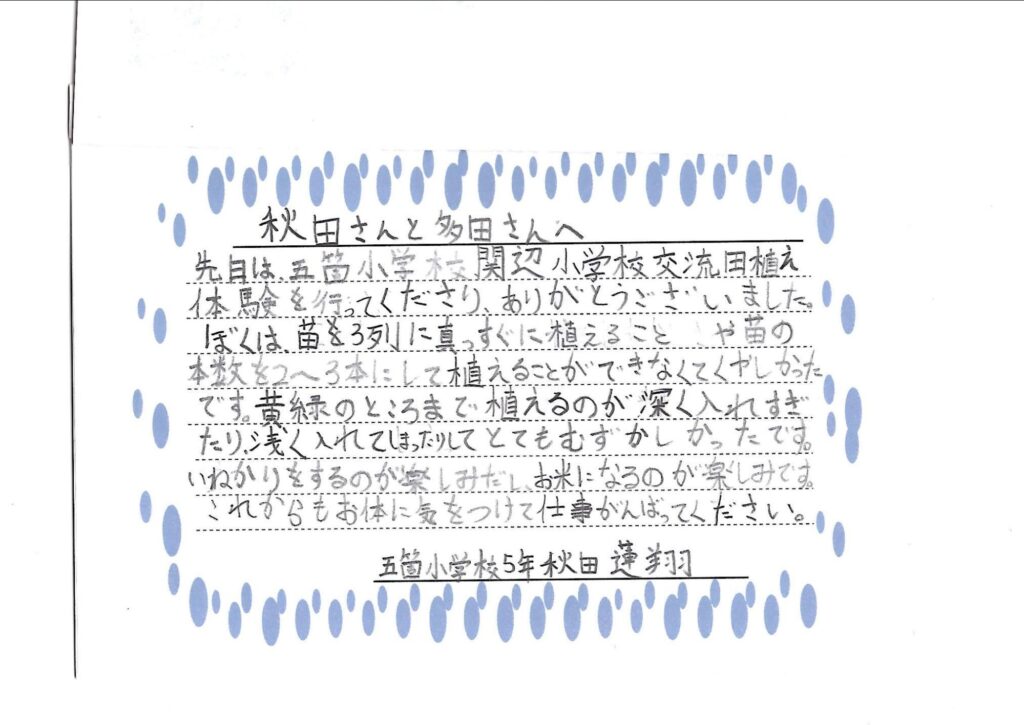 秋田さんと多田さんへ
先日は、五箇小学校関辺小学校交流田植え
体験を行ってくださり、ありがとうございました。
ぼくは、苗を3列に真っすぐに植えること や苗の
本数を2〜3本にして植えることができなくてくやしかった
です。黄緑のところまで植えるのが深く入れすぎ
たり、浅く入れてしまったりしてとてもむずかしかったです。
いねかりをするのが楽しみだし、お米になるのが楽しみです。
これからもお体に気をつけて仕事がんばってください。
五箇小学校5年秋田 蓮翔